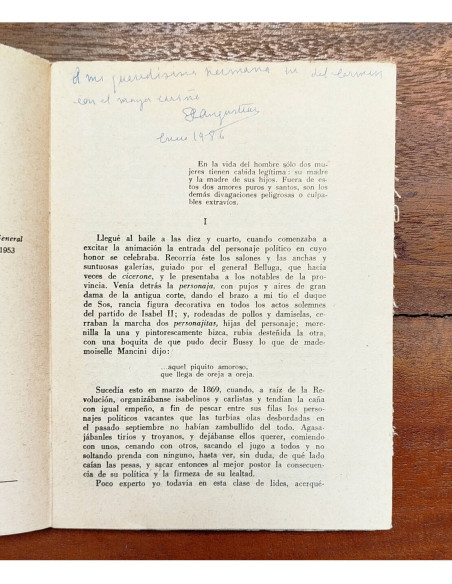 A mi queridisima hermana M. del Carmen
con el mayor cariño
Enero 1986
General
1953
En la vida del hombre sólo dos mu-
jeres tienen cabida legítima: su madre
y la madre de sus hijos. Fuera de es-
tos dos amores puros y santos, son los
demás divagaciones peligrosas o culpa-
bles extravíos.
I
Llegué al baile a las diez y cuarto, cuando comenzaba a
excitar la animación la entrada del personaje político en cuyo
honor se celebraba. Recorría éste los salones y las anchas y
suntuosas galerías, guiado por el general Belluga, que hacía
veces de cicerone, y presentaba a los notables de la pro-
vincia. Venía detrás la personaja, con pujos y aires de gran
dama de la antigua corte, dando el brazo a mi tío el duque
de Sos, rancia figura decorativa en todos los actos solemnes
del partido de Isabel II; y, rodeadas de pollos y damiselas, ce-
rraban la marcha dos personajitas, hijas del personaje; more-
nilla la una y pintorescamente bizca, rubia desteñida la otra,
con una boquita de que pudo decir Bussy lo que de made-
moiselle Mancini dijo:
...aquel piquito amoroso,
que llega de oreja a oreja.
Sucedía esto en marzo de 1869, cuando, a raíz de la Re-
volución, organizábanse isabelinos y carlistas y tendían la caña
con igual empeño, a fin de pescar entre sus filas los perso-
najes políticos vacantes que las turbias olas desbordadas en
el pasado septiembre no habían zambullido del todo. Agasa-
jábanles tirios y troyanos, y dejábanse ellos querer, comiendo
con unos, cenando con otros, sacando el jugo a todos y no
soltando prenda con ninguno, hasta ver, sin duda, de qué lado
caían las pesas, y sacar entonces al mejor postor la consecuen-
cia de su política y la firmeza de su lealtad.
Poco experto yo todavía en esta clase de lides, acerqué-